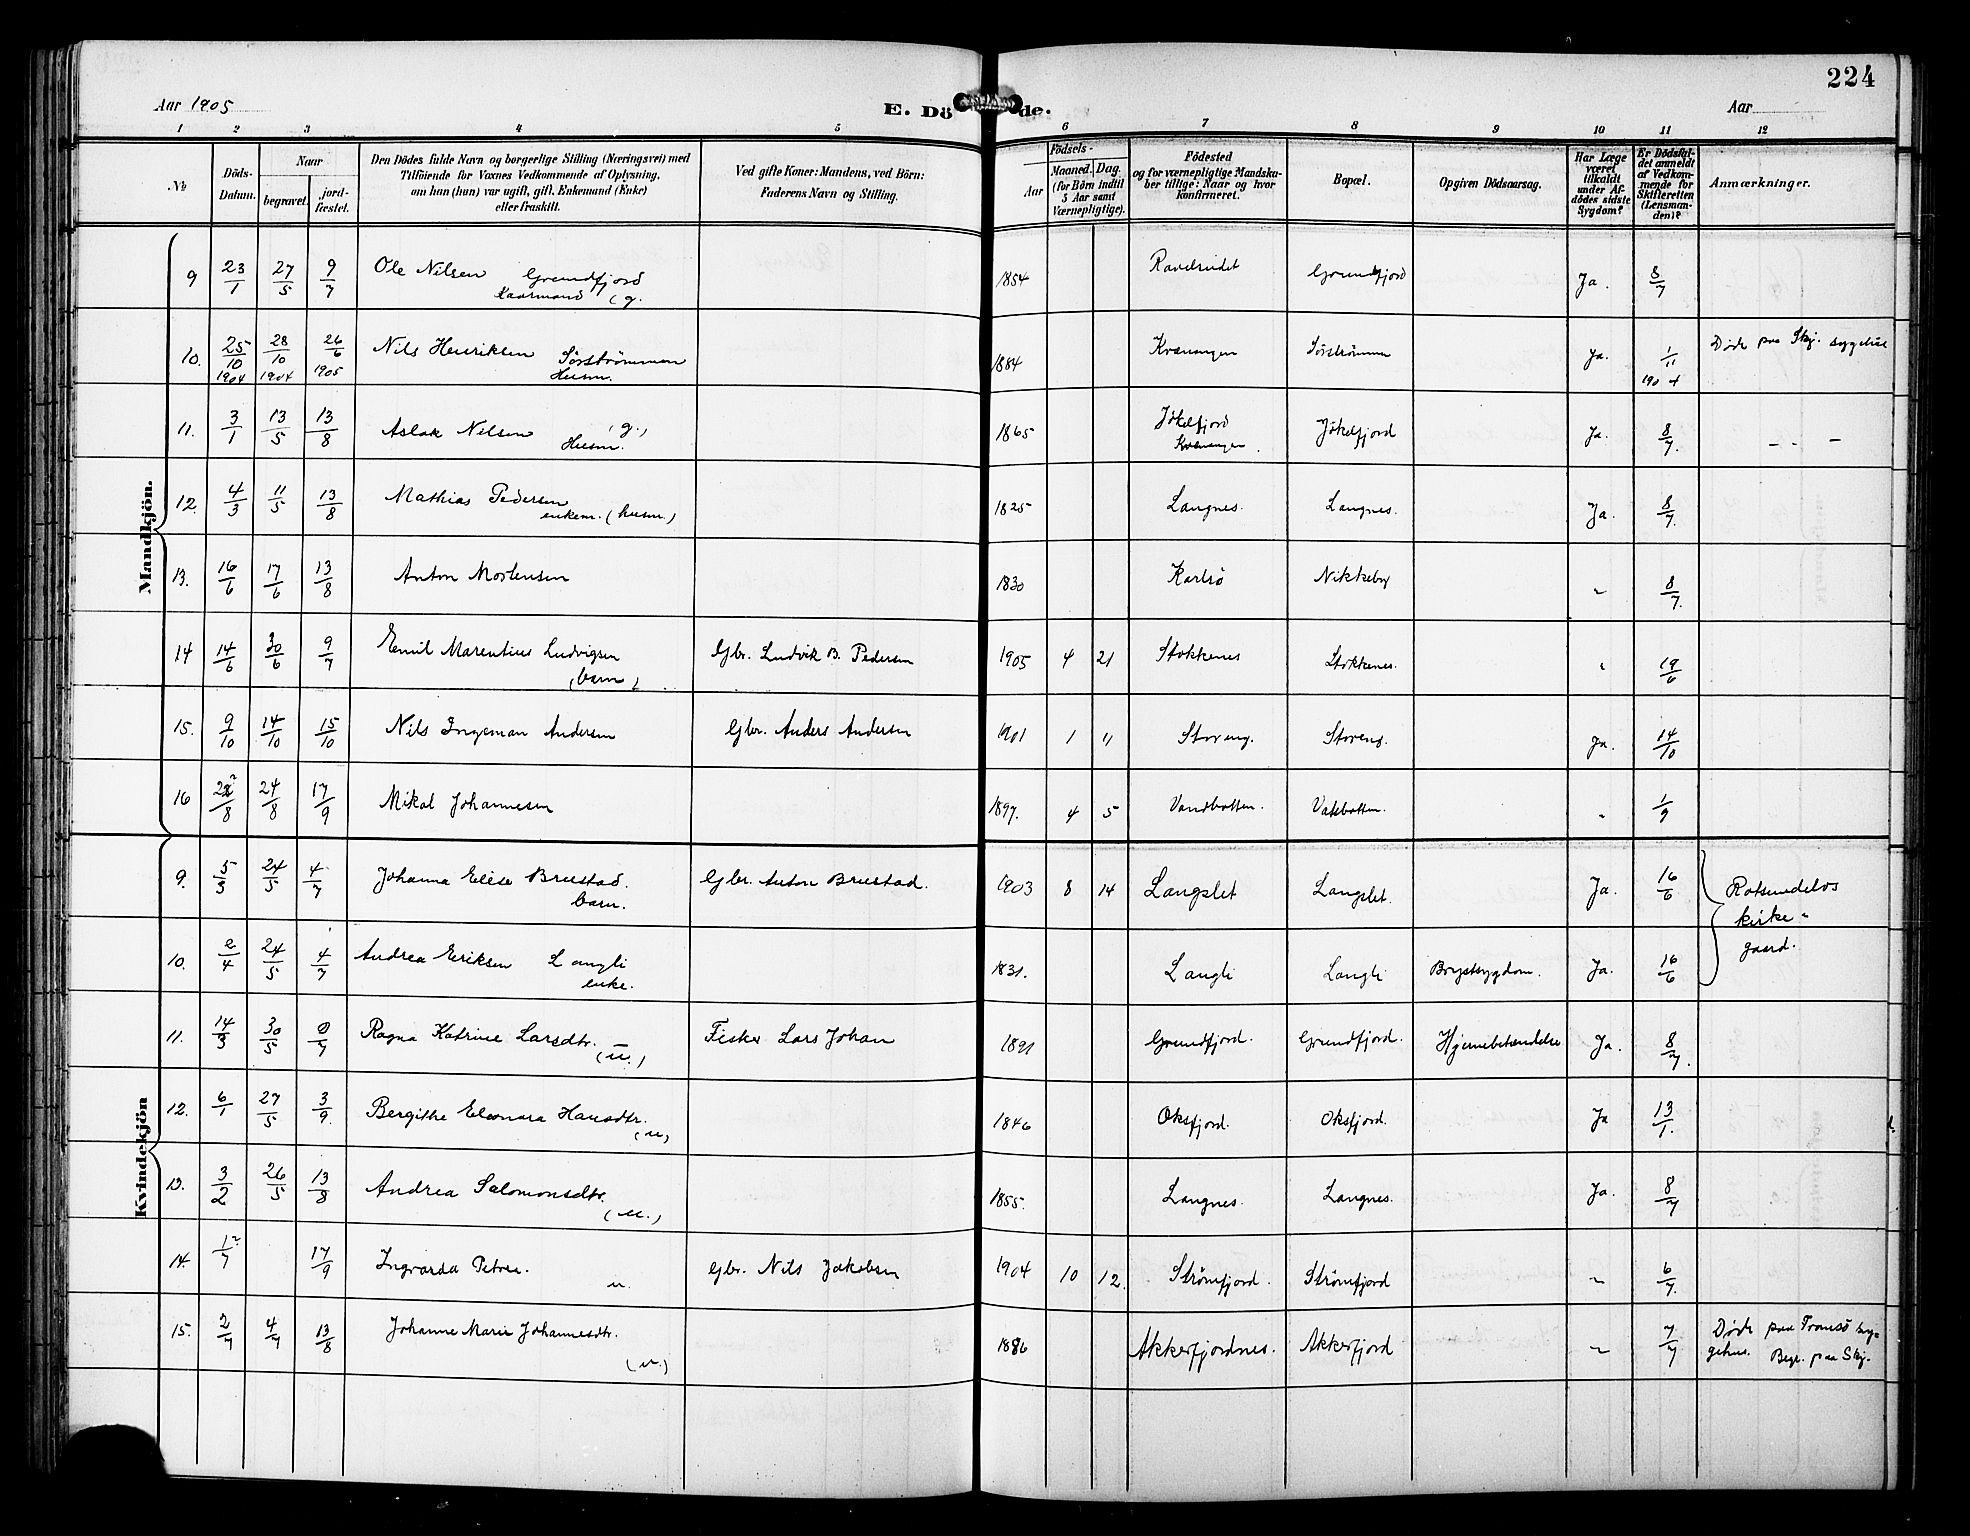 224
Aar 1905
E. Dö de.
Aar
1 2 3 4 5 6 7 8 9 10 11 12
No
Döds-Datum.
Naar
begravet.
jord-fæstet.
Den Dödes fulde Navn og borgerlige Stilling (Næringsvei) med
Tilföiende for Voxnes Vedkommende af Oplysning,
om han (hun) var ugift, gift, Enkemand (Enke)
eller fraskilt.
Ved gifte Koner: Mandens, ved Börn:
Faderens Navn og Stilling.
Födsels-
Aar
Maaned.
Dag.
(for Börn indtil
5 Aar samt
Værnepligtige).
Födested
og for værnepligtige Mandska-
ber tillige: Naar og hvor
konfirmeret.
Bopæl.
Opgiven Dödsaarsag.
Har Læge
været
tilkaldt
under Af-
dödes sidste
Sygdom?
Er Dödsfal-
det anmeldt
af Vedkom-
mende for
Skifteretten
(Lensman-
den)?
Anmærkninger.
Mandkjön.
9 23/1 27/5 9/7 Ole Nilsen Grundfjord 1854 Grundfjord Ja. 8/7
Kaarmand (g.
10. 25/10 28/10 26/6 Nils Henriksen Sørstrømmen 1884 Kvænangen Sørstrømmen Ja. 1/11 Døde paa Skj. sygehus
1904 1904 1905 Husm. 1904
11. 3/1 13/5 13/8 Aslak Nilsen (g.) 1865 Jøkelfjord Jøkelfjord Ja. 8/7. – " –
Husm. Kvænangen
12. 4/3 11/5 13/8 Mathias Pedersen 1825 Langnes. Langnes. Ja. 8/7.
enkem. (husm.)
13. 16/6 17/6 13/8 Anton Mortensen 1830 Karlsø Nikkeby " 8/7.
14 14/6 30/6 9/7 Emil Marentius Ludvigsen Gbr. Ludvik B. Pedersen 1905 4 21 Stokkenes Stokkenes. " 19/6
(barn)
15. 9/10 14/10 15/10 Nils Ingeman Andersen Gbr. Anders Andersen 1901 1 " Storeng. Storeng. Ja. 14/10
16 22/8 24/8 17/9 Mikal Johannesen 1897. 4 5 Vandbotten. " 1/9
Kvindekjön
9. 5/3 24/5 4/7 Johanna Elise Brustad. Gbr. Anton Brustad. 1903 8 14 Langslet Langslet. Ja. 16/6 Rotsundelvs
barn. kirke-
gaard.
10. 2/4 24/5 4/7 Andrea Eriksen Langli 1831. Langli Langli Brystsygdom. Ja. 16/6
enke.
11. 14/3 30/5 9/7 Ragna Katrine Larsdtr. Fisker Lars Johan 1891 Grundfjord. Grundfjord. Hjernebetændelse Ja. 8/7.
(u.)
12. 6/1 27/5 3/9. Bergithe Eleonora Hansdtr. 1846 Oksfjord. Oksfjord. Ja 13/1.
(u)
13. 3/2 26/5 13/8 Andrea Salomonsdtr. 1855. Langnes. Langnes. Ja. 8/7
(u.)
14. 12/7 17/9 Ingvarda Petrea. Gbr. Nils Jakobsen 1904 10 12. Strømfjord. Strømfjord " 6/7.
u.
15. 2/7 4/7 13/8 Johanne Marie Johannesdtr. 1886 Akkerfjordnes. Akkerfjord " 7/7 Døde paa Tromsø syg-
(u.) gehus. Begr. paa Skj.